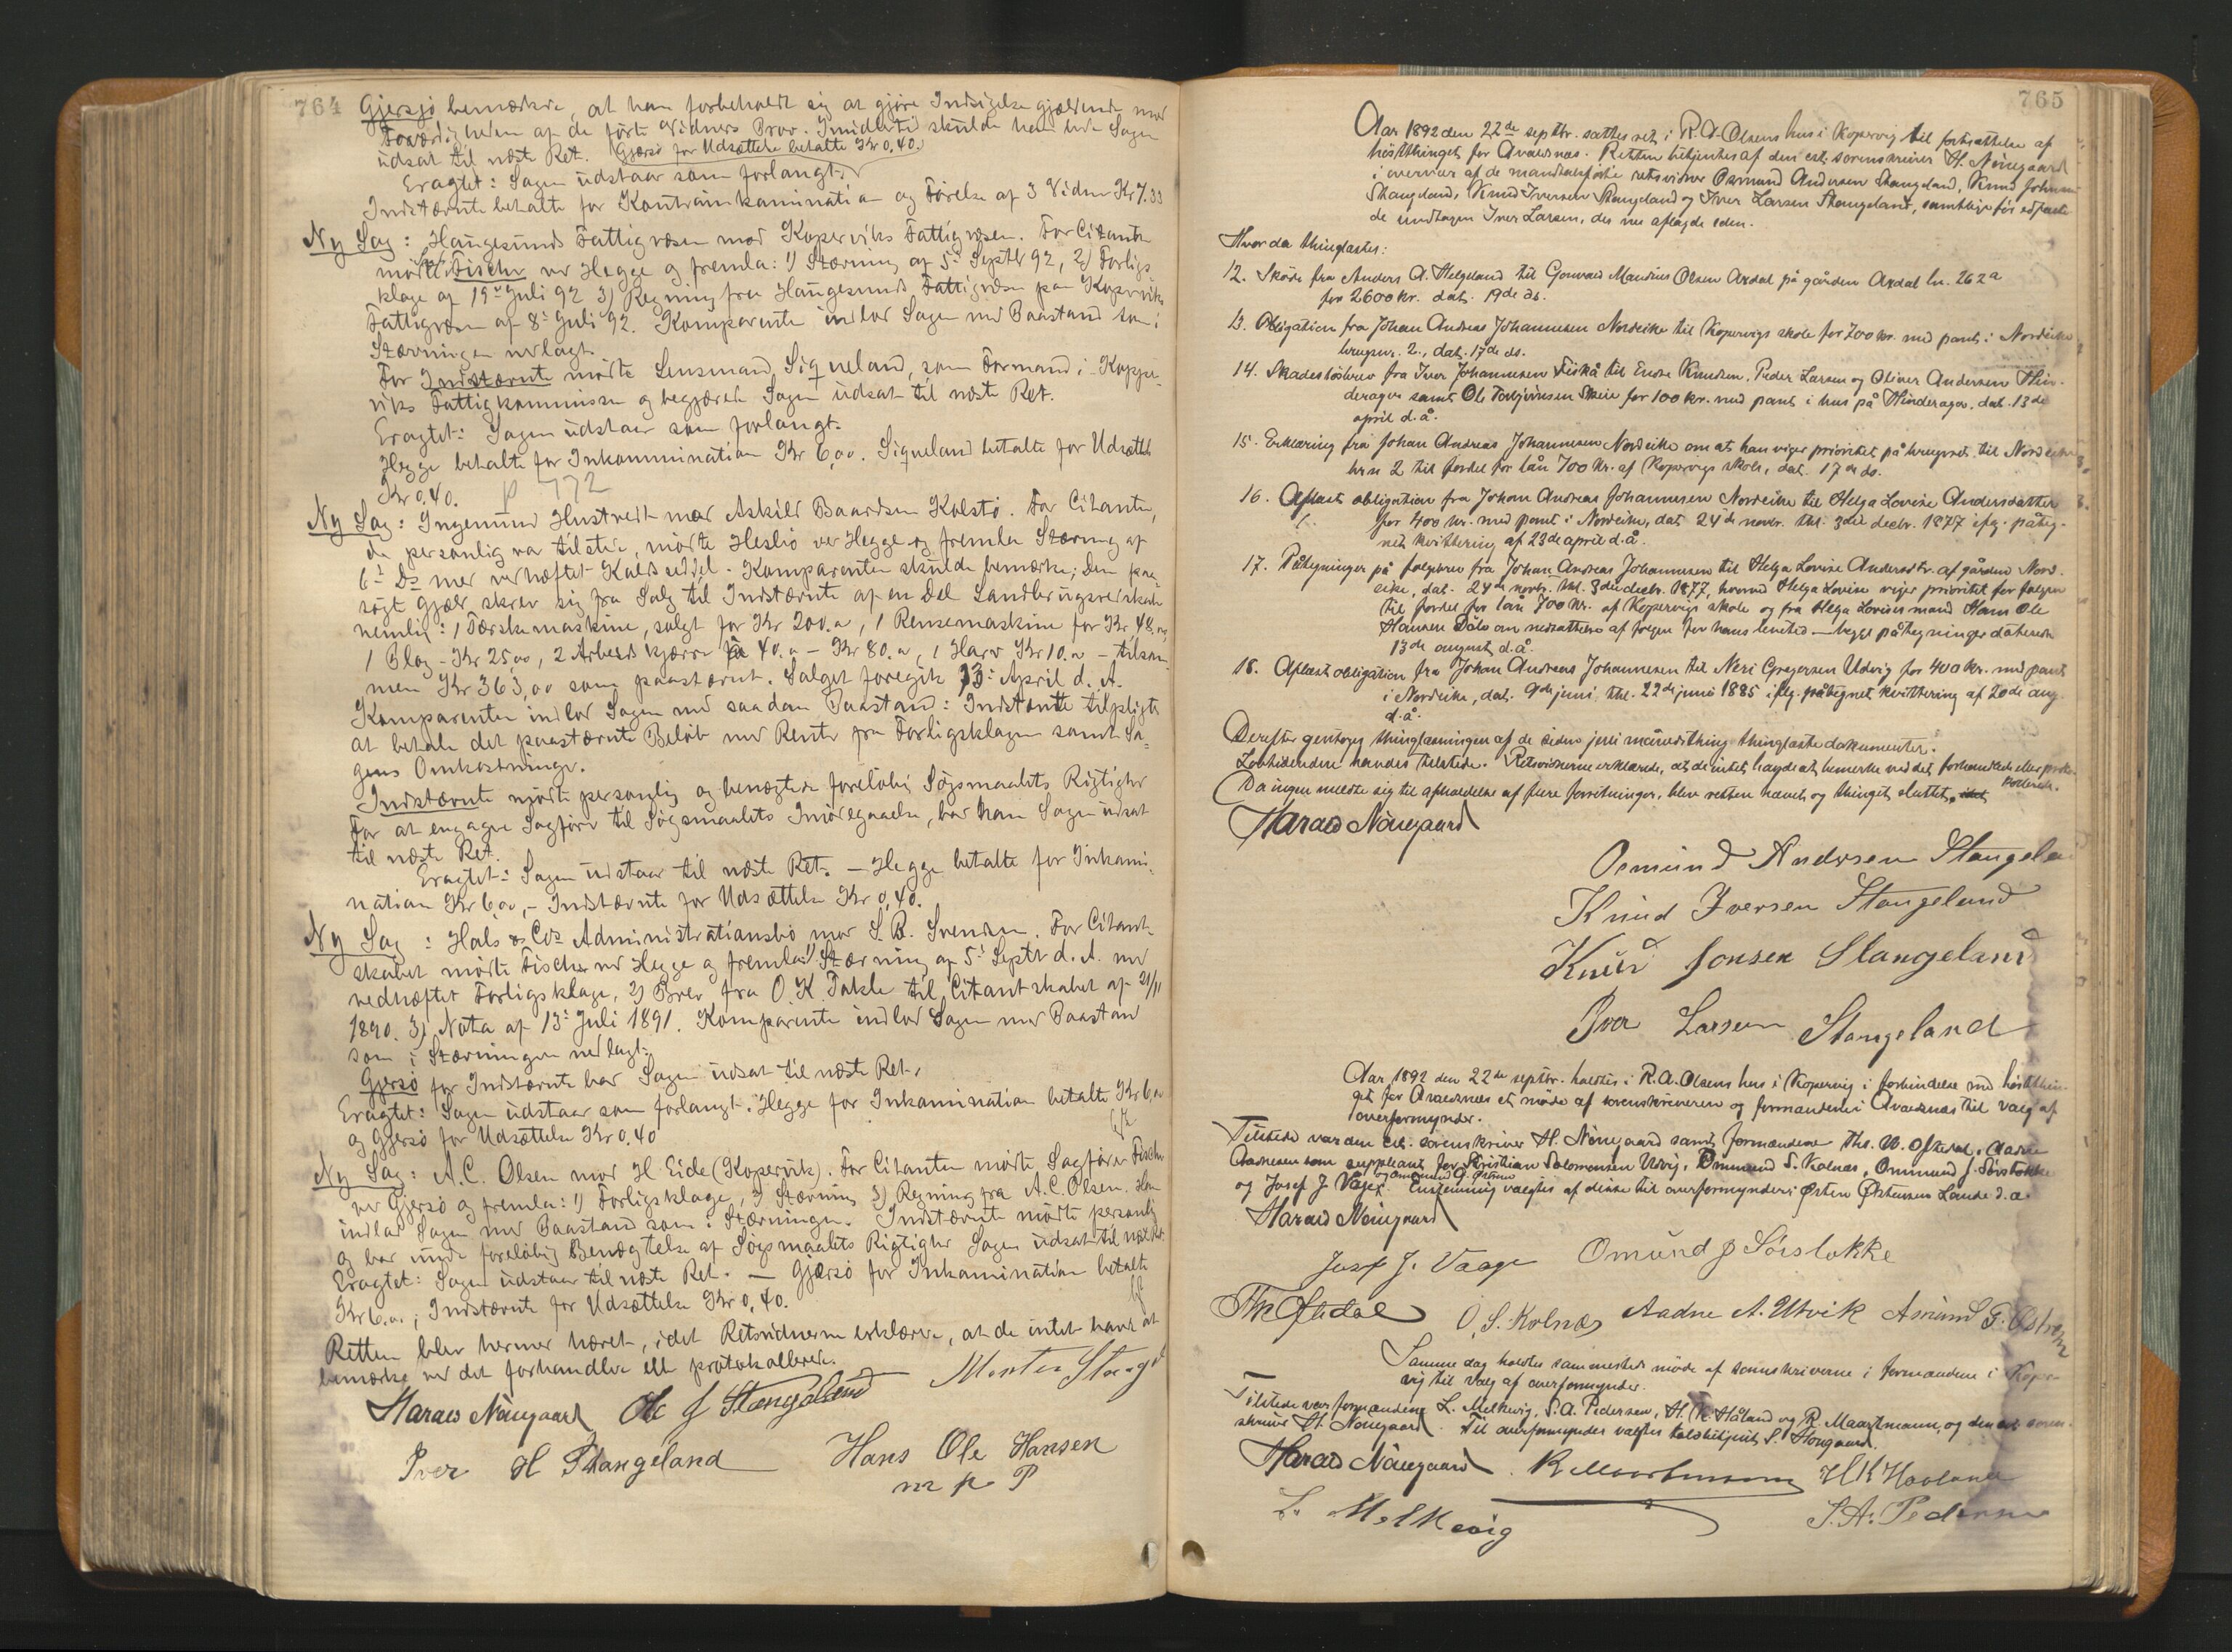 764
Gjersjö bemærkede, at han forbeholdt sig at gjøre Indsigelse gjældende mod
Troværdigheden af de førte Vidners Prov. Imidlertid skulde han bede Sagen
udsat til næste Ret. (Gjersö for Udsættelse betalte Kr 0,40.)
Eragtet: Sagen udstaar som forlangt.
Indstævnte betalte for Kontrainkamination og Førelse af 3 Vidner Kr 7.33
Ny Sag: Haugesunds Fattigvæsen mod Koperviks Fattigvæsen. For Citanten
mødte Fischer ved Hegge og fremla: 1) Stævning af 5' Septbr 92, 2) Forligs-
klage af 19' Juli 92 3) Regning fra Haugesunds Fattigvæsen paa Koperviks
Fattigvæsen af 8' Juli 92. Komparenten indlod Sagen med Paastand som i
Stævningen nedlagt.
For Indstævnte mødte Lensmand Siqveland, som Formand i Koper-
viks Fattigkommission og begjærede Sagen udsat til næste Ret.
Eragtet: Sagen udstaar som forlangt.
Hegge betalte for Inkammination Kr 6,00. Siqveland betalte for Udsættelse
Kr 0,40. p 772
Ny Sag: Ingemund Hustvedt mod Askild Baardsen Kolstö. For Citanten,
der personlig var tilstede, mødte Hesbö ved Hegge og fremla Stævning af
6' Ds med vedhæftet Kaldsseddel. Komparenten skulde bemærke; Den paa-
søgte Gjæld skrev sig fra Salg til Indstævnte af en Del Landbrugsredskaber
nemlig: 1 Tærskemaskine, solgt for Kr 200.00, 1 Rensemaskine for Kr 48,00
1 Plog - Kr 25,00, 2 Arbeidskjærrer 40.00 - Kr 80.00, 1 Harv Kr 10.00 - tilsam-
men Kr 363,00 som paastævnt. Salget foregik 13' April d. A.
Komparenten indlod Sagen med saadan Paastand: Indstævnte tilpligtes
at betale det paastævnte Beløb med Renter fra Forligsklagen samt Sa-
gens Omkostninger.
Indstævnte mødte personlig og benægtede foreløbig Søgsmaalets Rigtighed
For at engagere Sagfører til Søgsmaalets Imødegaaelse, bad han Sagen udsat
til næste Ret.
Eragtet: Sagen udstaar til næste Ret. — Hegge betalte for Inkami-
nation Kr 6,00, - Indstævnte for Udsættelse Kr 0,40.
Ny Sag: Hals & Cos Administrationsbo mod S. B. Svendsen. For Citant-
skabet mødte Fischer ved Hegge og fremla: 1) Stævning af 5' Septr d. A. med
vedhæftet Forligsklage, 2) Brev fra O. K. Takle til Citantskabet af 21/11
1890. 3) Nota af 13' Juli 1891. Komparenten indlod Sagen med Paastand
som i Stævningen nedlagt.
Gjersö for Indstævnte bad Sagen udsat til næste Ret.
Eragtet: Sagen udstaar som forlangt. Hegge for Inkamination betalte Kr 6,00
og Gjersö for Udsættelse Kr 0,40
Ny Sag: A. C. Olsen mod H Eide (Kopervik). For Citanten mødte Sagfører Fischer
ved Gjersö og fremla: 1) Forligsklage, 2) Stævning 3) Regning fra A. C. Olsen. Han
indlod Sagen med Paastand som i Stævningen. Indstævnte mødte personlig
og bad under foreløbig Benægtelse af Søgsmaalets Rigtighed Sagen udsat til næste Ret.
Eragtet: Sagen udstaar til næste Ret. — Gjersö for Inkamination betalte
Kr 6.00; Indstævnte for Udsættelse Kr 0,40.
Retten blev hermed hævet, idet Retsvidnerne erklærede, at de intet havde at
bemærke ved det forhandlede ell protokollerede.
Harald Nörregaard Ole J Stangeland Morten Stange
Iver H Stangeland Hans Ole Hansen
m p P
765
Aar 1892 den 22de septbr. sattes ret i R. A. Olsens hus i Kopervig til fortsættelse af
høstthinget for Avaldsnæs. Retten betjentes af den cst. sorenskriver H. Nörregaard
i overvær af de mandtalsførte retsvidner Osmund Andersen Stangeland, Knud Johnsen
Stangeland, Knud Iversen Stangeland og Iver Larsen Stangeland, samtlige før edfæste-
de undtagen Iver Larsen, der nu aflagde eden.
Hvorda thinglæstes:
12. Skjøde fra Anders A. Helgeland til Gonvald Maudius Olsen Axdal på gården Axdal ln. 262a
for 2600 kr. dat. 19de ds.
13. Obligation fra Johan Andreas Johannesen Nordeike til Kopervigs skole for 700 kr. med pant i Nordeike
brugsnr. 2., dat. 17de ds.
14. Skadesløsbrev fra Iver Johannesen Fiskå til Endre Knudsen, Peder Larsen og Oliver Andersen Hin-
derager samt Ole Torbjørnsen Skeie for 100 kr. med pant i hus på Hinderager, dat. 13de
april d. å.
15. Erklæring fra Johan Andreas Johannesen Nordeike om at han viger prioritet på brugsret til Nordeike
br. n 2 til fordel for lån 700 kr. af Kopervigs skole, dat. 17de ds.
16. Aflæst obligation fra Johan Andreas Johannesen Nordeike til Helga Lovise Andersdatter
for 400 kr. med pant i Nordeike, dat. 24de novbr. thl. 3die decbr. 1877 iflg. påteg-
net kvittering af 23de april d. å.
17. Påtegninger på følgebrev fra Johan Andreas Johannesen til Helga Lovise Andersdtr. af gården Nord-
eike, dat. 24de novbr. thl. 3die decbr. 1877, hvorved Helga Lovise viger prioritet for følgen
til fordel for lån 700 kr. af Kopervigs skole og fra Helga Lovises mand Hans Ole
Hansen Dale om nedsættelse af følgen for hans levetid — begge påtegninger daterede
13de august d. å.
18. Aflæst obligation fra Johan Andreas Johannesen til Neri Gregersen Udvig for 400 kr. med pant
i Nordeike, dat. 9de juni thl. 22de juni 1885 iflg. påtegnet kvittering af 20de aug.
d. å.
Derefter gentoges thinglæsningen af de siden juni månedsthing thinglæste dokumenter.
Lovtidenden havdes tilstede. Retsvidnerne erklærede, at de intet havde at bemerke ved det forhandlede eller proto-
kollerede.
Da ingen meldte sig til afholdelse af flere forretninger, blev retten hævet og thinget sluttet.
Harald Nörregaard
Osmund Andersen Stangeland
Knud Iversen Stangeland
Knud Jonsen Stangeland
Iver Larsen Stangeland
Aar 1892 den 22de septbr. holdtes i R. A. Olsens hus i Kopervig i forbindelse med høstthin-
get for Avaldsnæs et møde af sorenskriveren og formændene i Avaldsnæs til valg af
overformynder.
Tilstede var den cst. sorenskriver H. Nörregaard samt formændene Ths. W. Ofstedal, Aadne
Aadnesen som suppleant for Kristian Salomonsen Udvig, Ommund S. Kolnæs, Ommund J. Sørstokke
og Josef J. Våge. Enstemmig valgtes af disse til overformynder: Østen Østensen Lande d. æ.
Harald Nörregaard
Josef J. Vaage Omund J Sörstokke
Ths Ofstedal O. S. Kolnæs Aadne A. Utvik Asmund G. Østrem
Samme dag holdtes sammesteds møde af sorenskriveren i formændene i Koper-
vig til valg af overformynder.
Tilstede var formændene L. Melkevig, S. A. Pedersen, H. K. Håland og R. Maartmann, og den cst. soren-
skriver H. Nörregaard. Til overformynder valgtes toldbetjent S. Stougaard.
Harald Nörregaard R Maartmann H K Haaland
L. Melkevig S. A. Pedersen